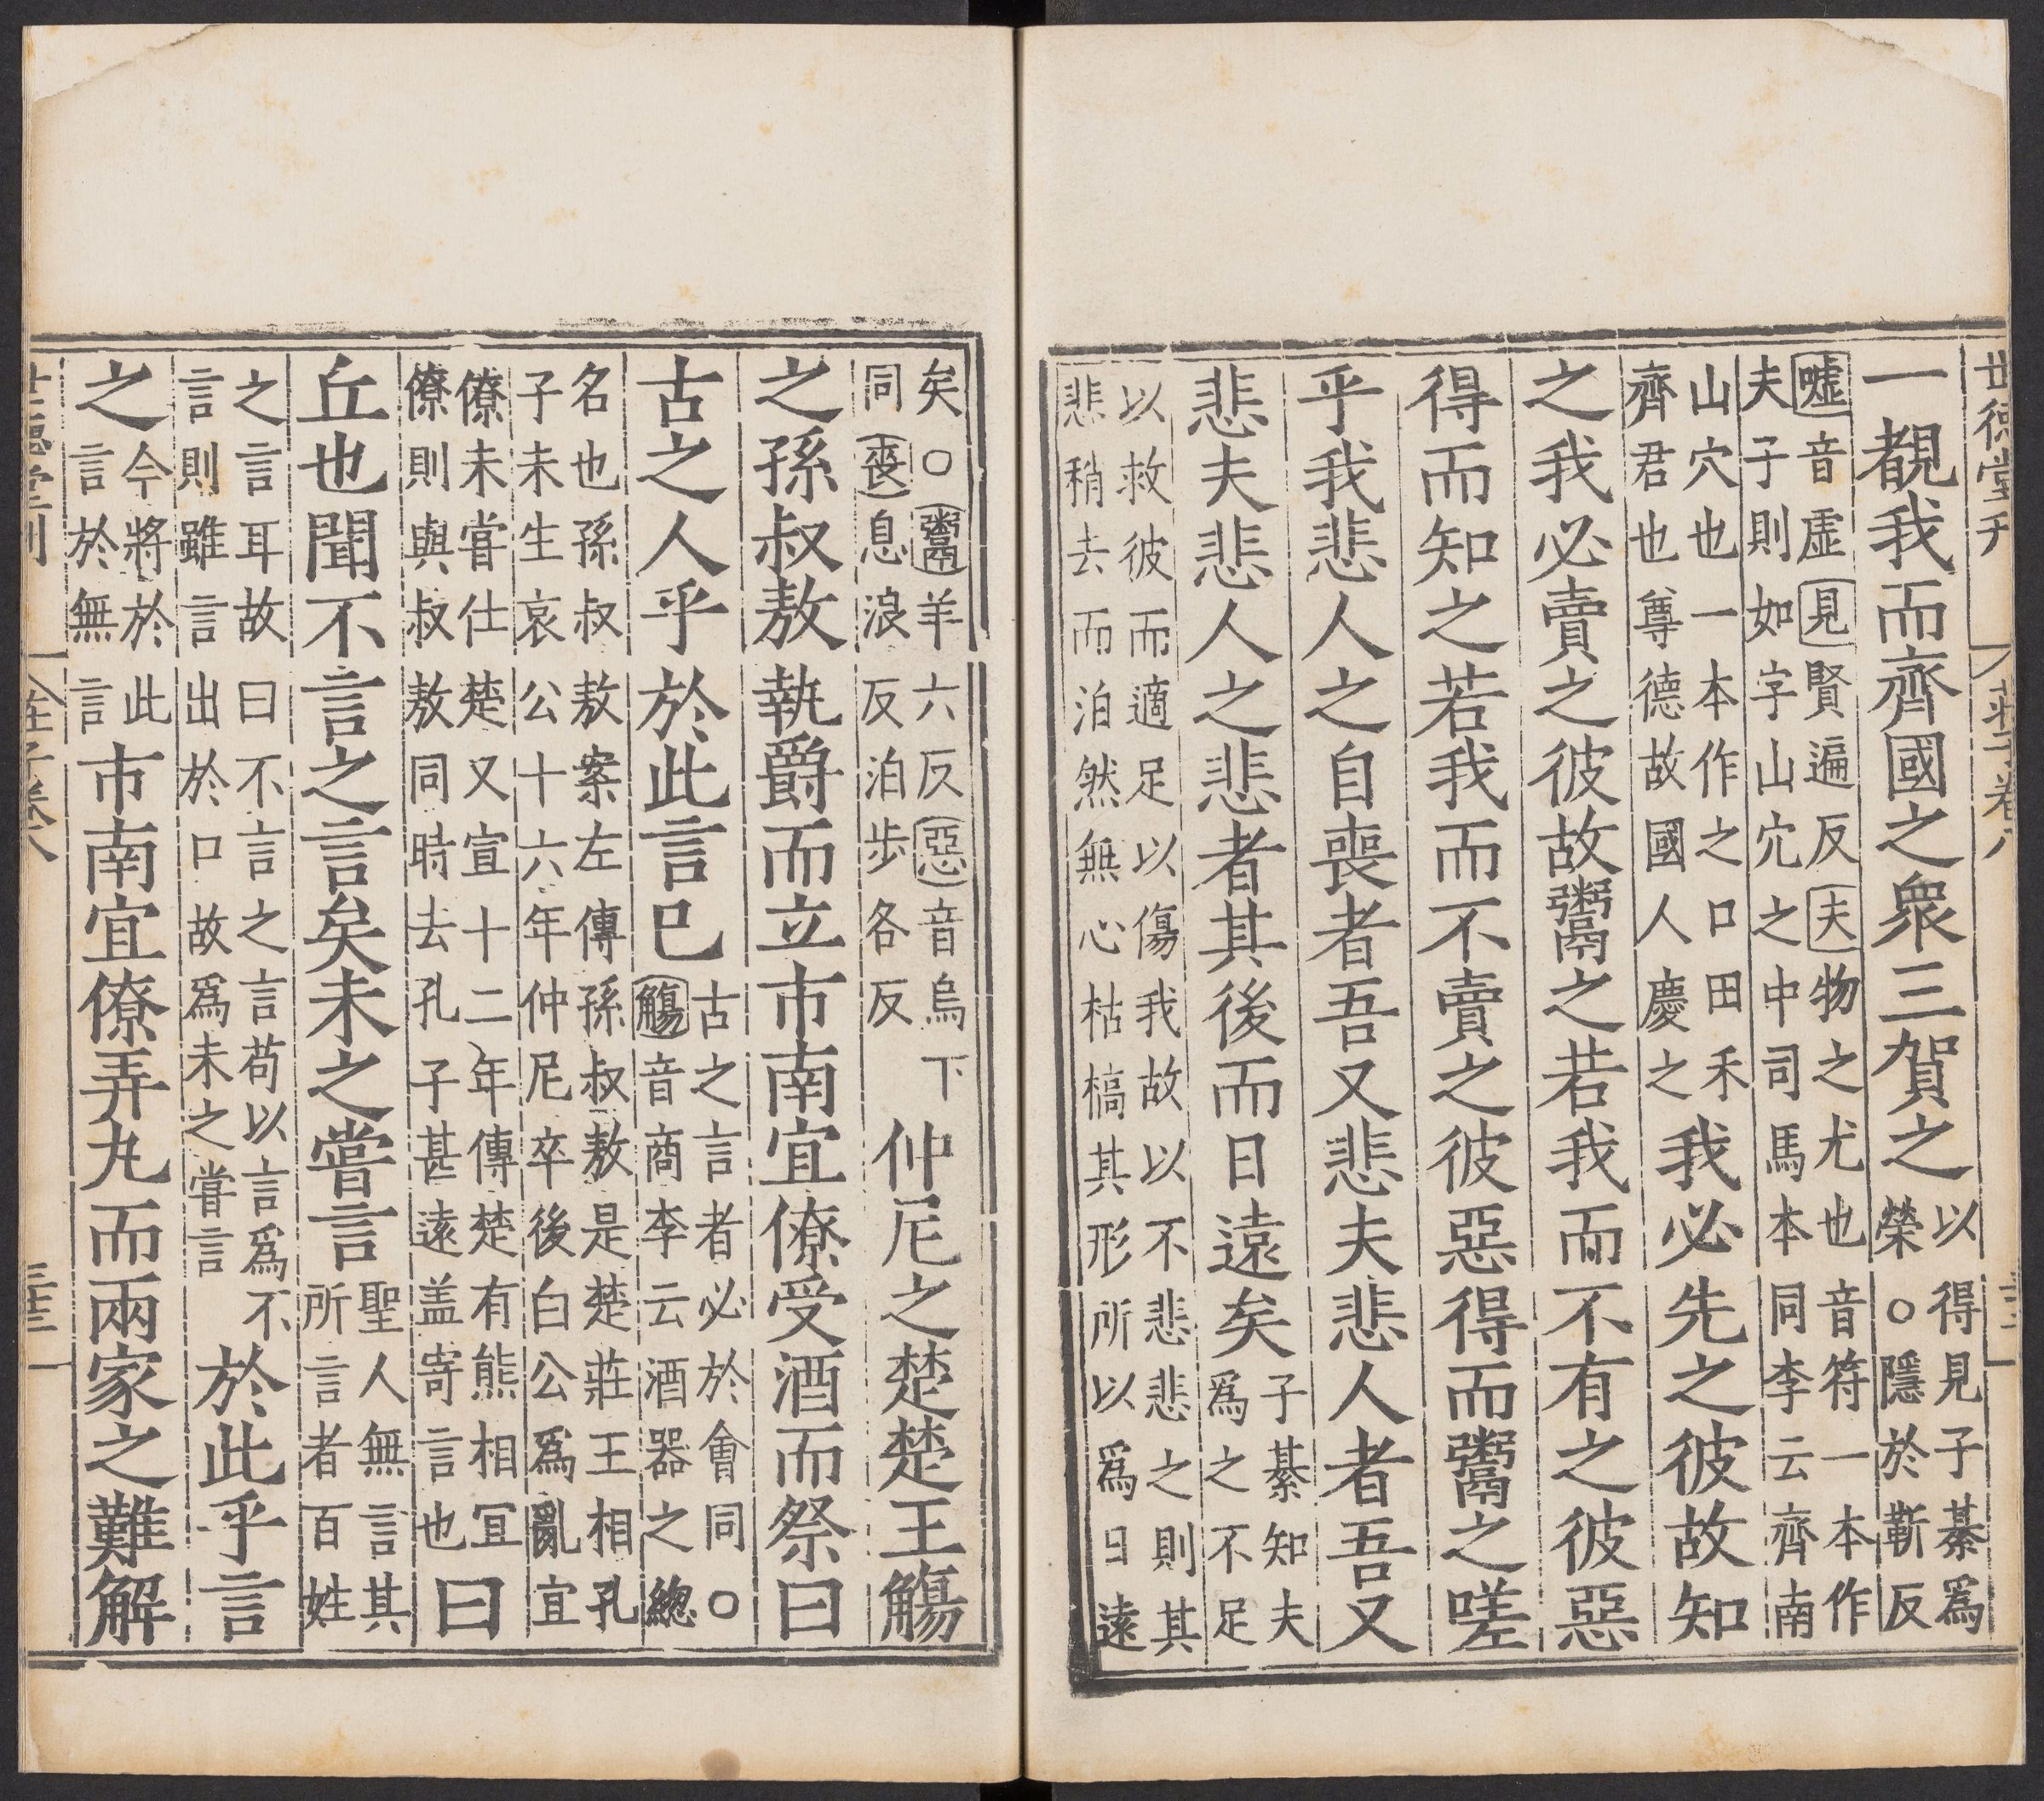 世德堂刋 莊子卷八
一覩我而齊國之衆三賀之以得見子綦爲榮○隱於靳反
噓音虛見賢遍反夫物之尤也音符一本作
夫子則如字山穴之中司馬本同李云齊南
山穴也一本作之口田禾齊君也尊德故國人慶之我必先之彼故知
之我必賣之彼故鬻之若我而不有之彼惡
得而知之若我而不賣之彼惡得而鬻之嗟
乎我悲人之自喪者吾又悲夫悲人者吾又
悲夫悲人之悲者其後而日遠矣子綦知夫爲之不足
以救彼而適足以傷我故以不悲悲之則其
悲稍去而泊然無心枯槁其形所以爲日遠
矣○鬻羊六反惡音烏下同喪息浪反泊步各反仲尼之楚楚王觴
之孫叔敖執爵而立市南宜僚受酒而祭曰
古之人乎於此言已古之言者必於會同○觴音商李云酒器之緫
名也孫叔敖案左傳孫叔敖是楚莊王相孔
子未生哀公十六年仲尼卒後白公爲亂宜
僚未嘗仕楚又宣十二年傳楚有熊相宜僚則與叔敖同時去孔子甚遠盖寄言也曰
丘也聞不言之言矣未之嘗言聖人無言其所言者百姓
之言耳故曰不言之言苟以言爲不言則雖言出於口故爲未之嘗言於此乎言
之今將於此言於無言市南宜僚弄丸而兩家之難解
世德堂刋 莊子卷八